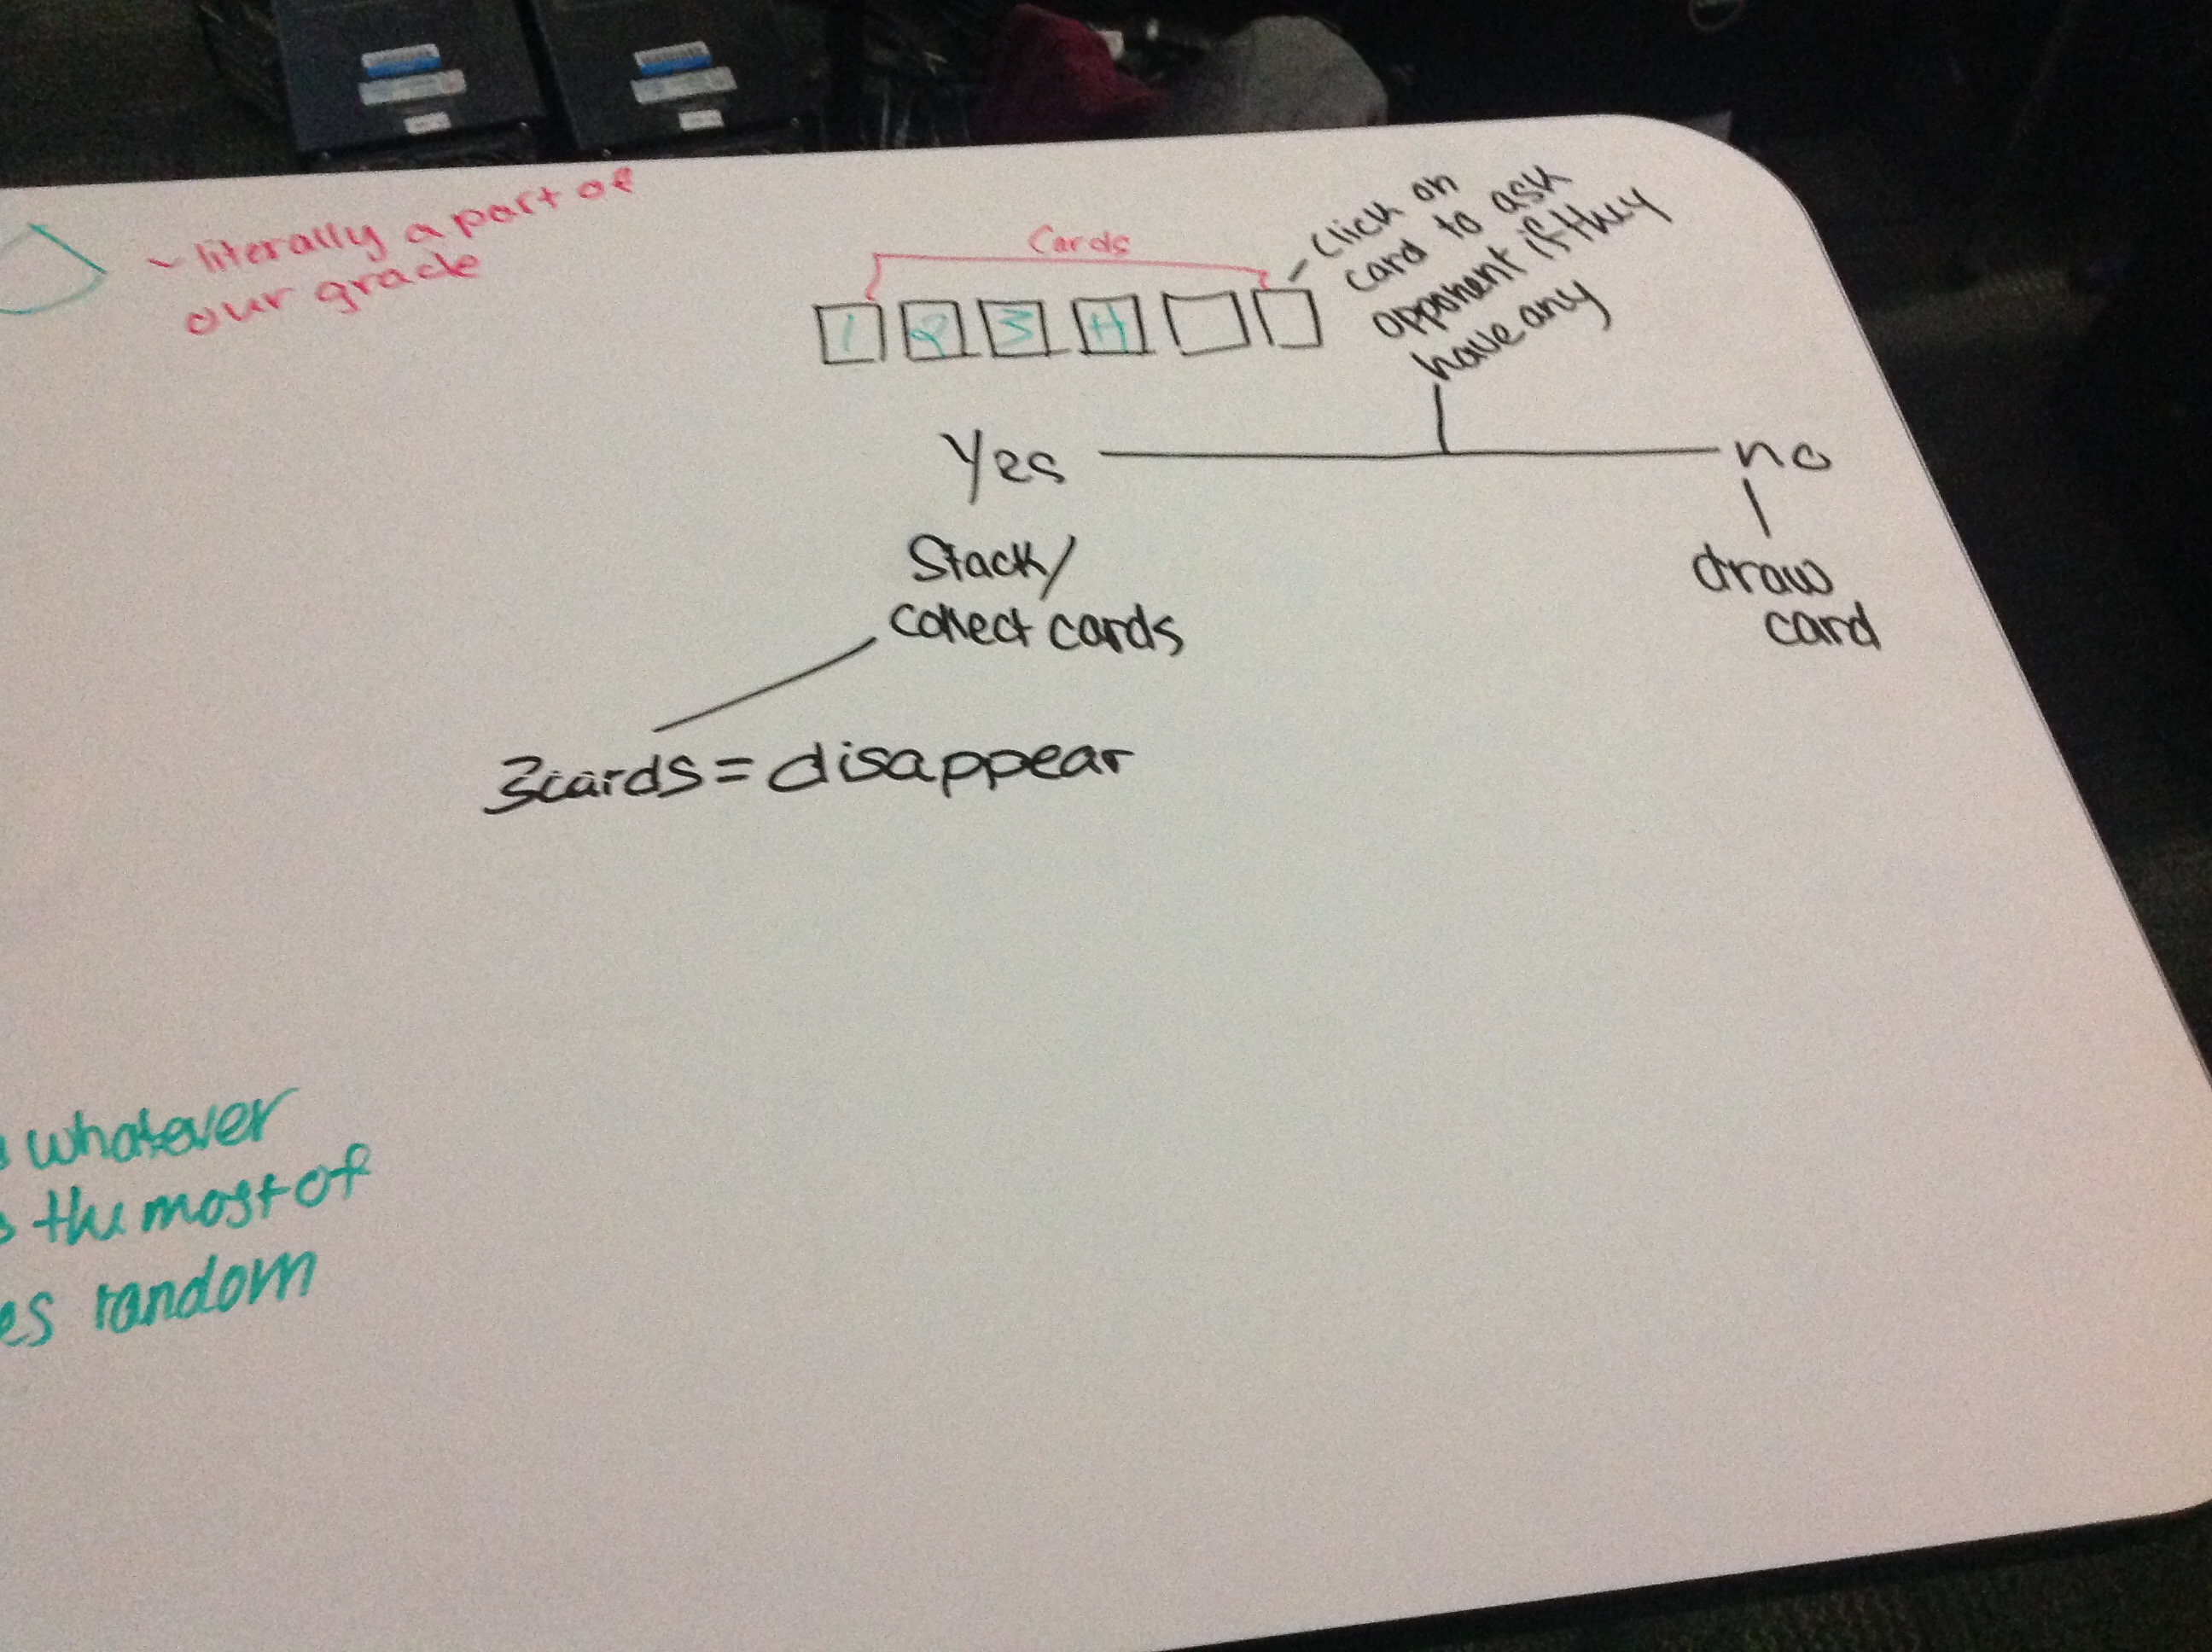 - literally a part of
our grade
Cards
1 2 3 4
- Click on
card to ask
opponent if they
have any
Yes
no
Stack/
collect cards
draw
card
3cards = disappear
whatever
the most of
es random